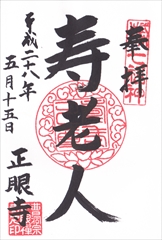 奉拝
寿老人
正眼寺
平成二十八年
五月十五日